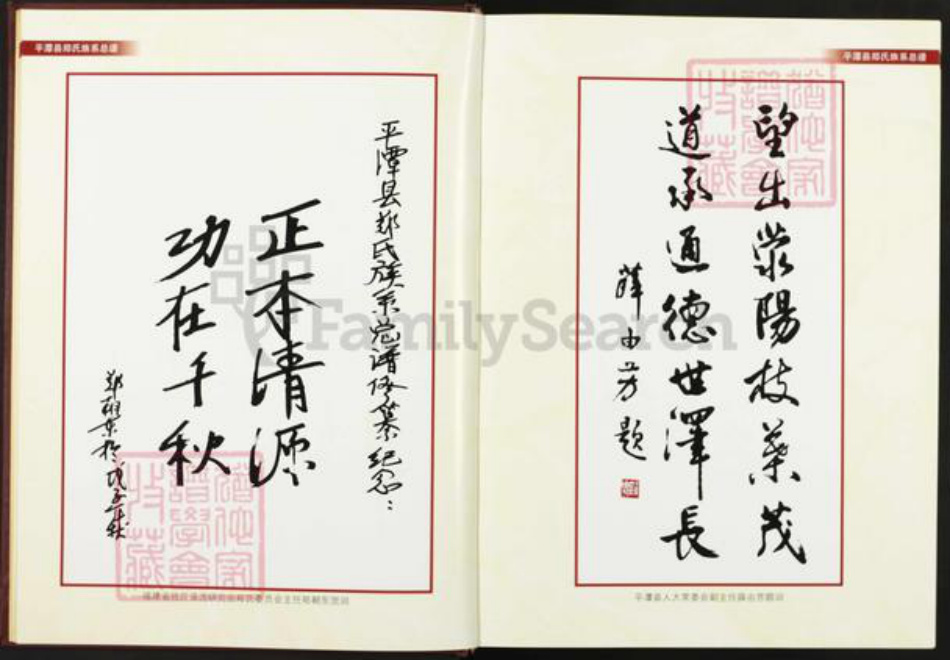 平潭县郑氏族系总谱
平潭县郑氏族系总谱修纂纪念：
正本清源
功在千秋
郑 东于戊子年秋
平潭县郑氏族系总谱
望出荥陽枝葉茂
道承通德世澤長
薛由芳题
平潭县人大常委会副主任薛由芳题词
譜學會
收藏
譜學會
收藏
FamilySearch